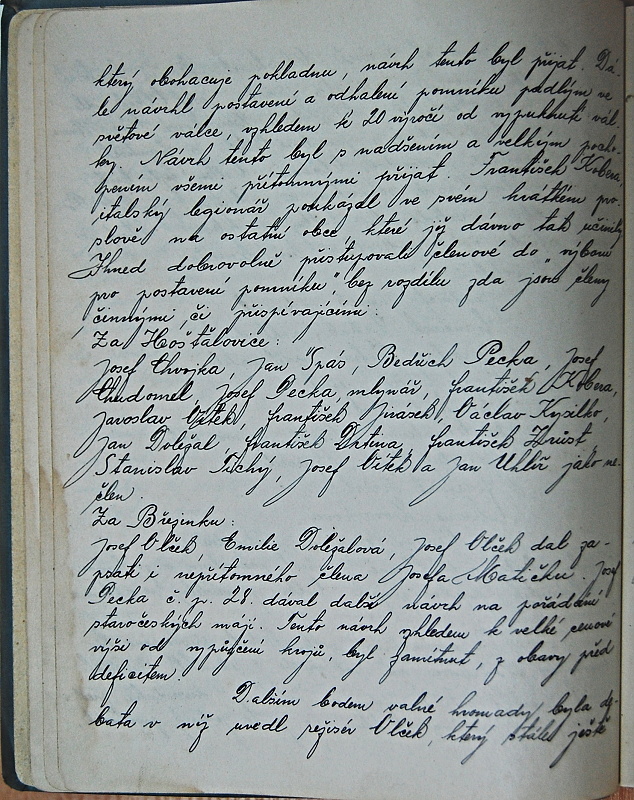 který obohacuje pokladnu, návrh tento byl přijat. Dá-
le návrhl postavení a odhalení pomníku padlým ve
světové válce, vzhledem k 20 výročí od vypuknutí vál-
ky. Návrh tento byl s nadšením a velkým pocho-
pením všemi přítomnými přijat. František Kobera,
italský legionář poukázal ve svém krátkém pro-
slově na ostatní obce, které již dávno tak učinily
Ihned dobrovolně přistupovali členové do "výboru
pro postavení pomníku", bez rozdílu zda jsou členy
činnými, či přispívajícími.
Za Hošťalovice:
Josef Chvojka, Jan Spás, Bedřich Pecka, Josef
Chudomel, Josef Pecka, mlynář, František Kobera,
Jaroslav Vítek, František Jirásek, Václav Kysilko,
Jan Doležal, František Drtina, František Zrůst
Stanislav Tichý, Josef Vítek a Jan Uhlíř jako ne-
člen.
Za Březinku:
Josef Vlček, Emilie Doležalová, Josef Vlček dal za-
psati i nepřítomného člena Josefa Matičku. Josef
Pecka č. p. 28. dával další návrh na pořádání
staročeských májí. Tento návrh vzhledem k velké cenové
výši od vypůjčení krojů, byl zamítnut, z obavy před
deficitem.
Dalším bodem valné hromady byla de-
bata v níž uvedl režisér Vlček, který stále ještě